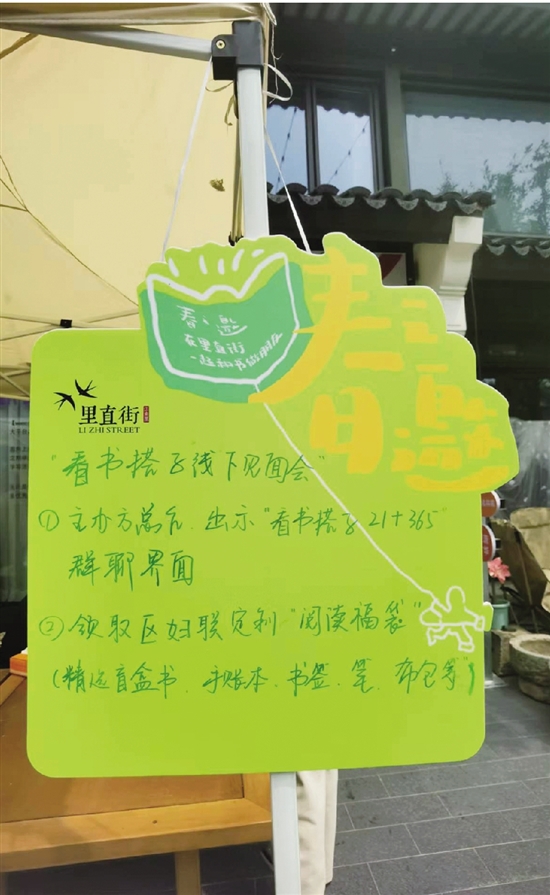 春之
在里直街
春日
里直街
LI ZHI STREET
"看书搭子线下见面会"
① 主办方
出示"看书搭子21+365"
群聊界面
② 领取区妇联定制"阅读福袋"
(精选盲盒书、手账本、书签、笔、布包等)